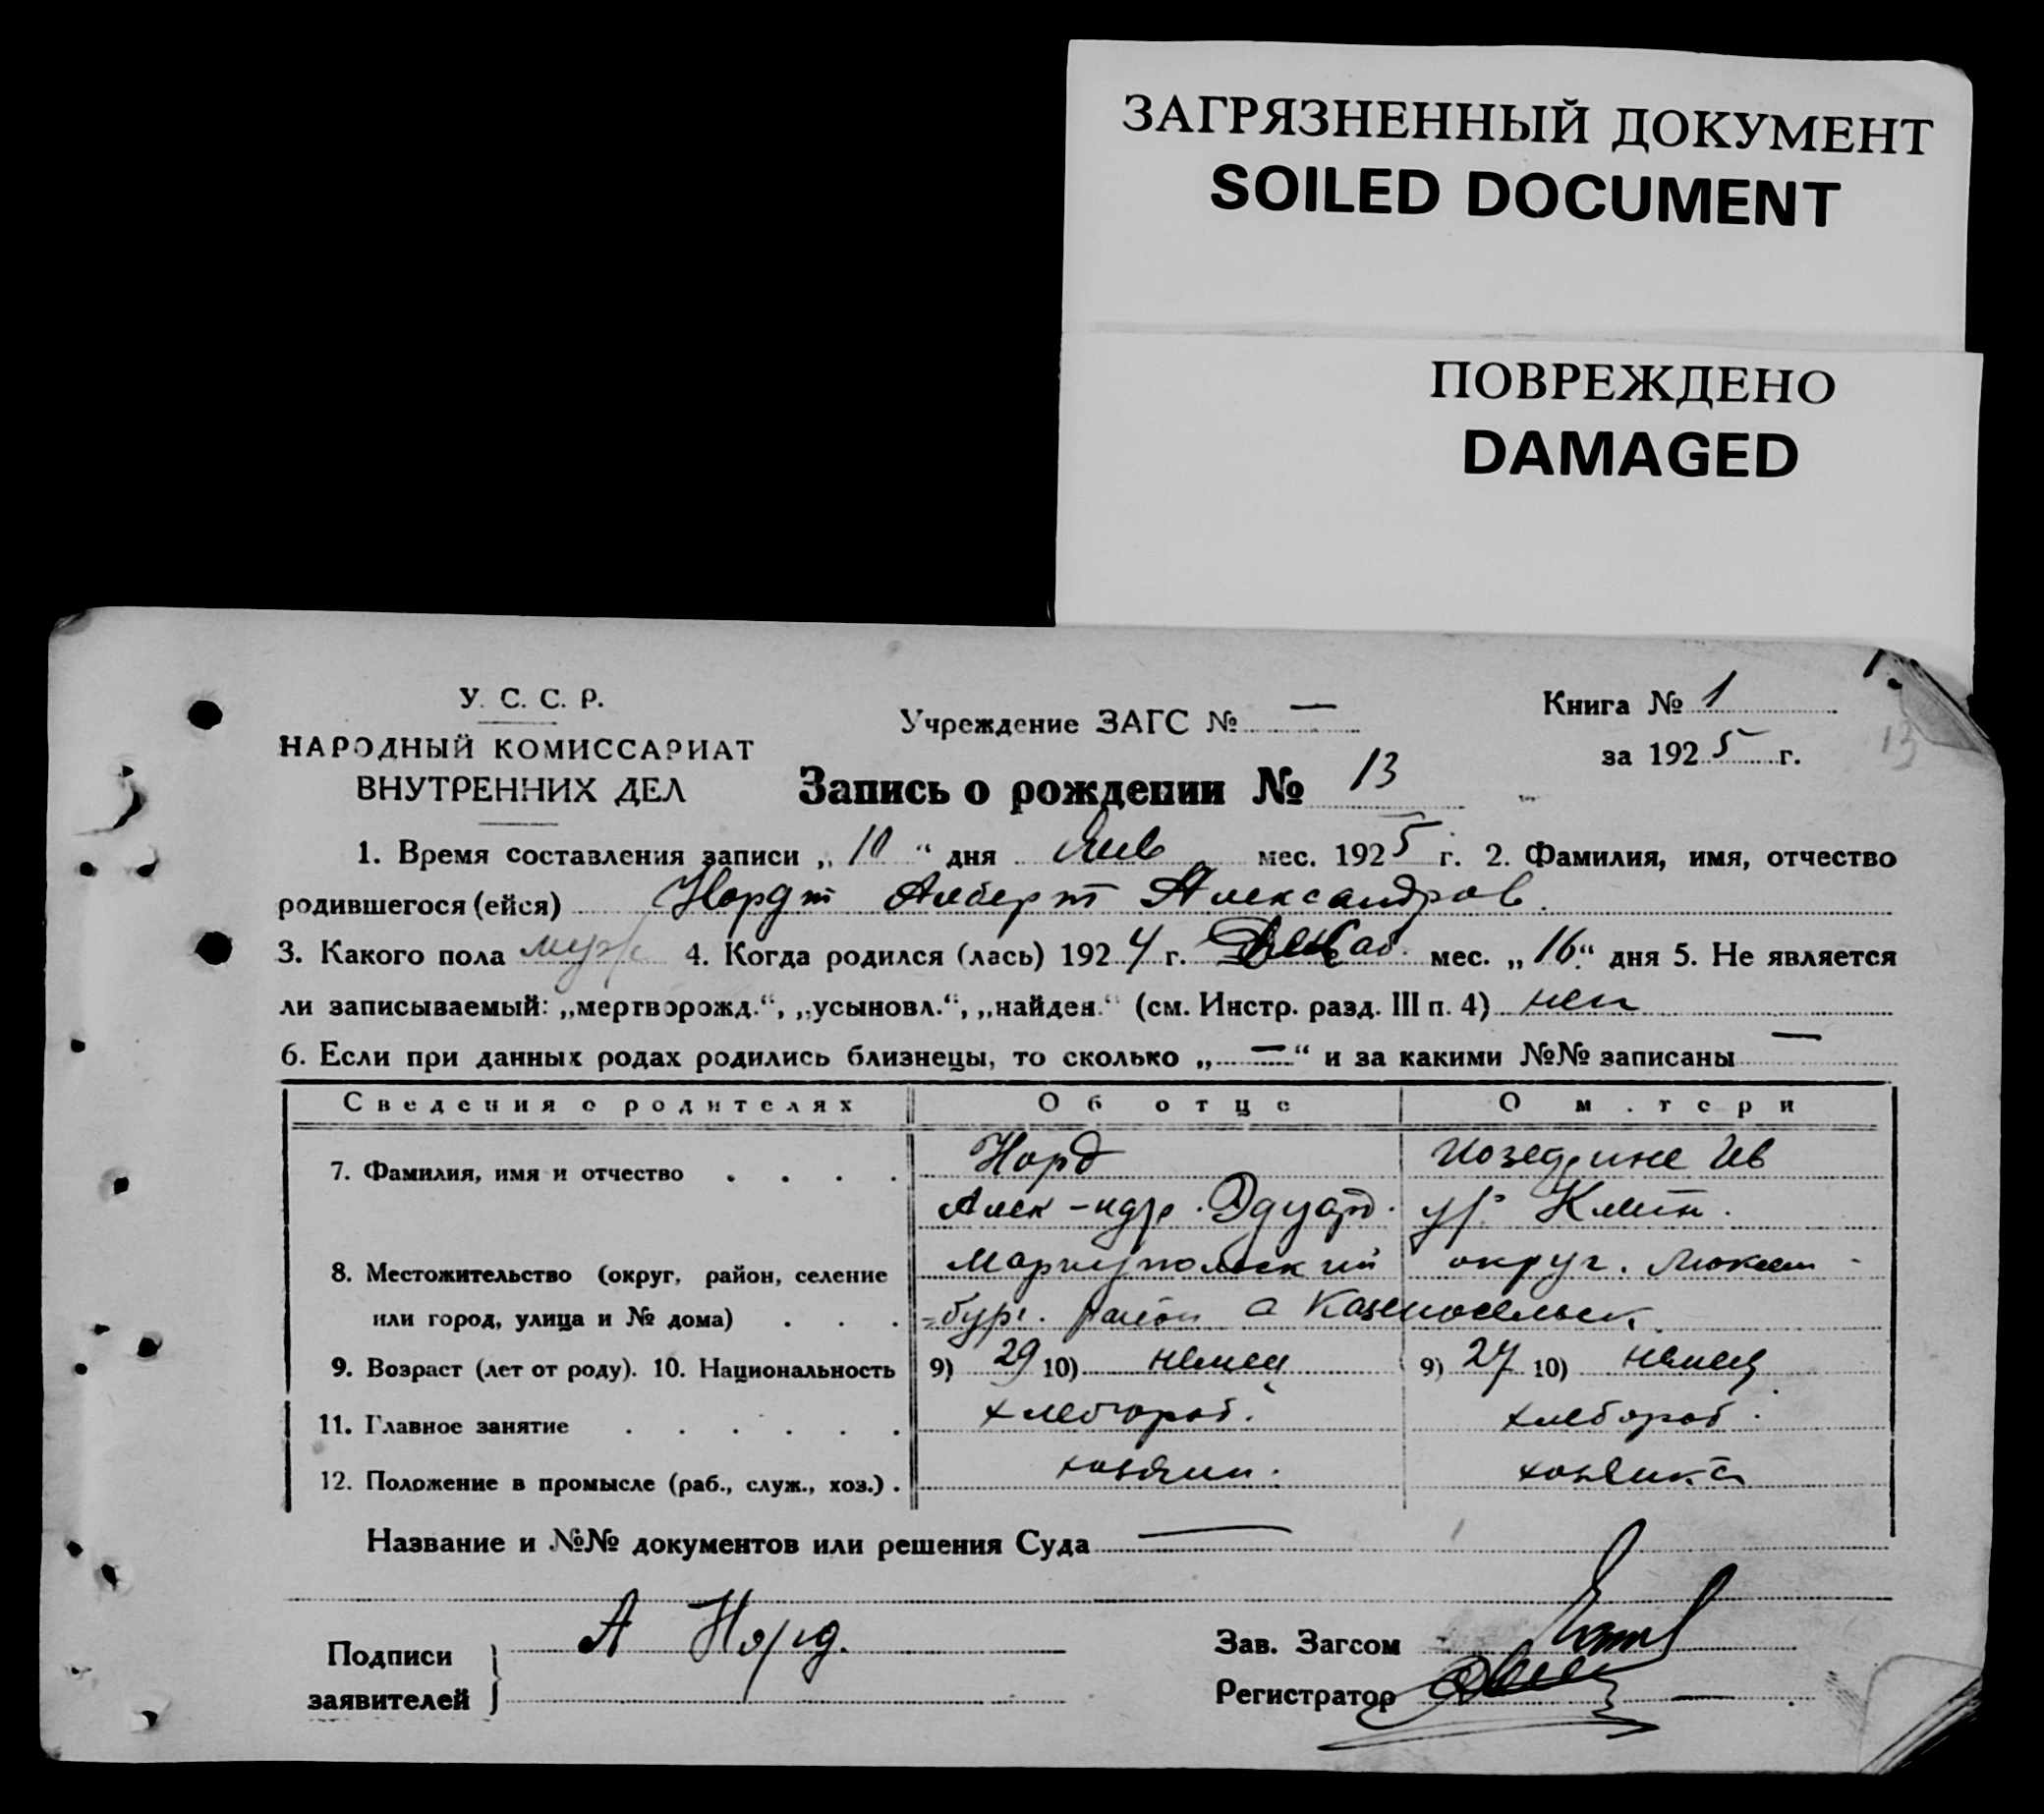 ЗАГРЯЗНЕННЫЙ ДОКУМЕНТ
SOILED DOCUMENT
ПОВРЕЖДЕНО
DAMAGED
У. С. С. Р.
НАРОДНЫЙ КОМИССАРИАТ
ВНУТРЕННИХ ДЕЛ
Учреждение ЗАГС № —
Книга № 1
за 1925 г.
13
Запись о рождении № 13
1. Время составления записи „10“ дня Янв мес. 1925 г. 2. Фамилия, имя, отчество
родившегося (ейся) Нордт Алберт Александров.
3. Какого пола муж 4. Когда родился (лась) 1924 г. Декаб. мес. „16“ дня 5. Не является
ли записываемый: „мертворожд.“, „усыновл.“, „найден.“ (см. Инстр. разд. III п. 4) нет
6. Если при данных родах родились близнецы, то сколько „—“ и за какими №№ записаны —
Сведения о родителях Об отце О м.тери
7. Фамилия, имя и отчество . . . . Норд Ив
Алек-ндр. Эдуард. ур.
8. Местожительство (округ, район, селение Мариупольский округ. Люксем-
или город, улица и № дома) . . . =бург. район с Казеносельск.
9. Возраст (лет от роду). 10. Национальность 9) 29 10) немец 9) 27 10) немец
11. Главное занятие . . . . . . хлебороб. хлебороб.
12. Положение в промысле (раб., служ., хоз.) . хозяин. хозяйка
Название и №№ документов или решения Суда —
Подписи
заявителей } А Норд.
Зав. Загсом
Регистратор